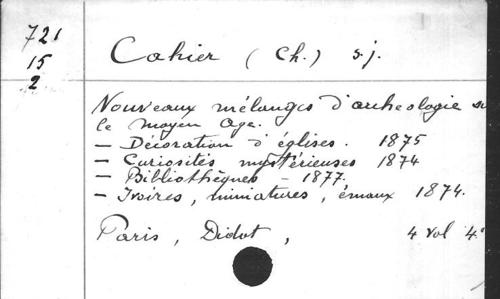 721
15
2
Cahier (Ch.) s.j.
Nouveaux mélanges d'archeologie su
le moyen age.
- Décoration d'églises. 1875
- Curiosités mystérieuses 1874
- Bibliothèques - 1877.
- Ivoires, miniatures, émaux 1874.
Paris, Didot, 4 vol 4°